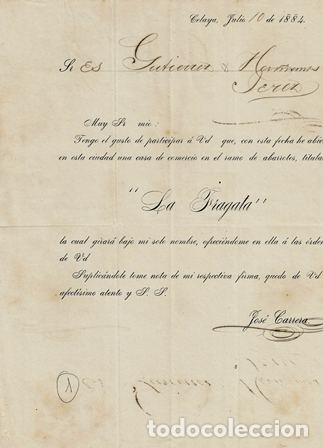 Celaya, Julio 10 de 1884.
Sr es Gutierrez & Hermanos
Muy Sr mio:
Tengo el gusto de participar á Vd que, con esta fecha he abie
en esta ciudad una casa de comercio en el ramo de abarrotes, titula
"La Fragata"
la cual girará bajo mi solo nombre, ofreciéndome en ella á las órden
de Vd
Suplicándole tome nota de mi respectiva firma, quedo de Vd
afectísimo atento y S. S.
José Carrera
todocoleccion
todocoleccion.net